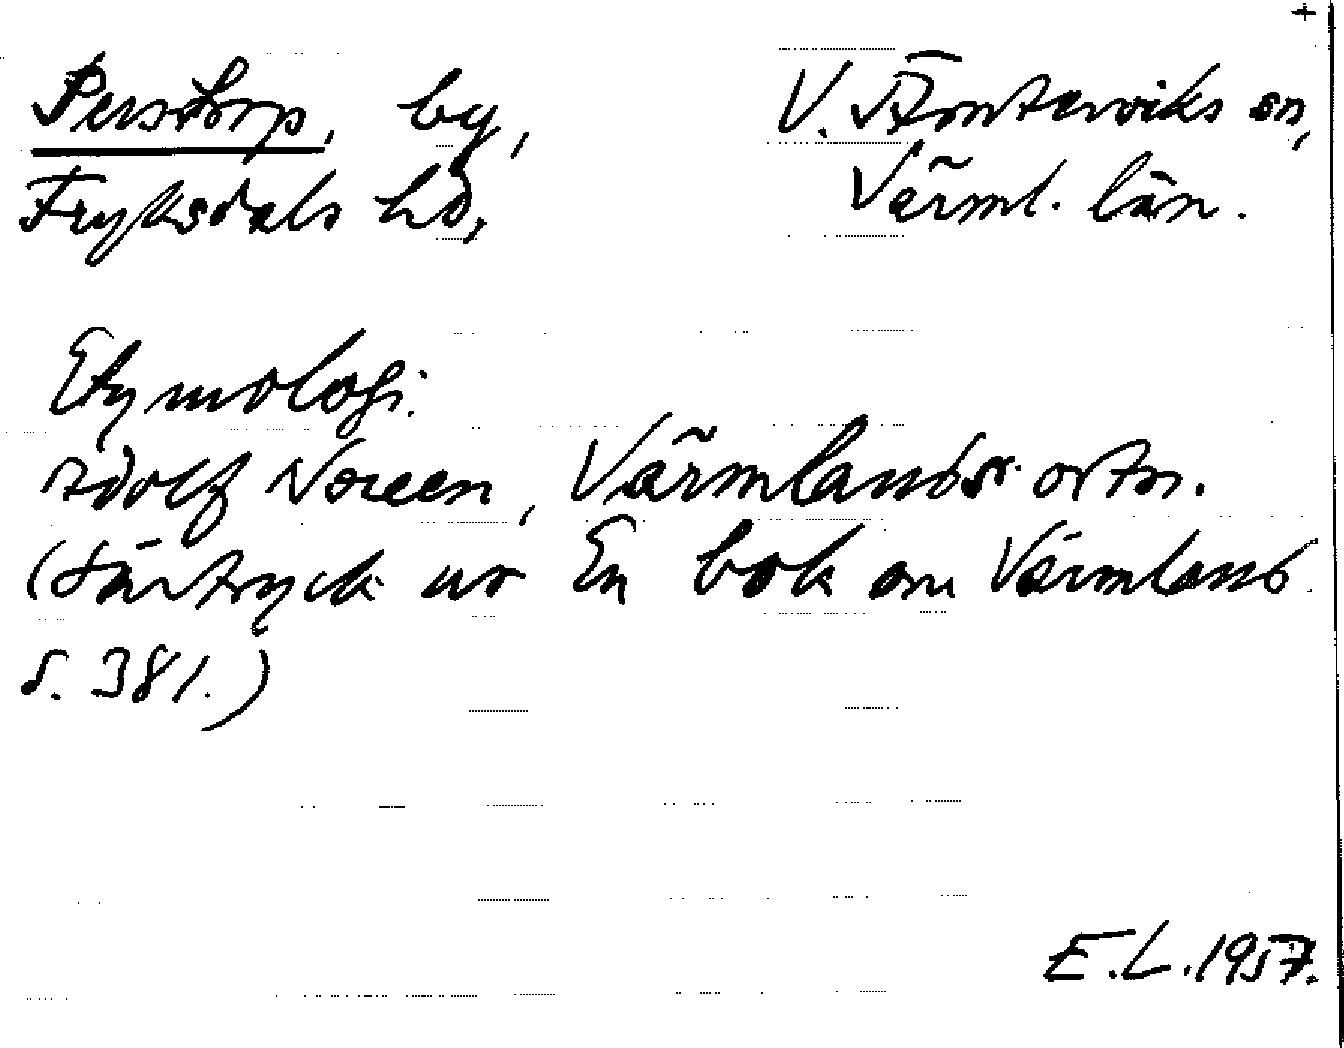 +
Perstorp, by, V. Ämterviks sn,
Fryksdals hd, Värml. län.
Etymologi.
Adolf Noreen, Värmlands ortn.
(Särtryck ur En bok om Värmland
s. 381.)
E.L. 1957.